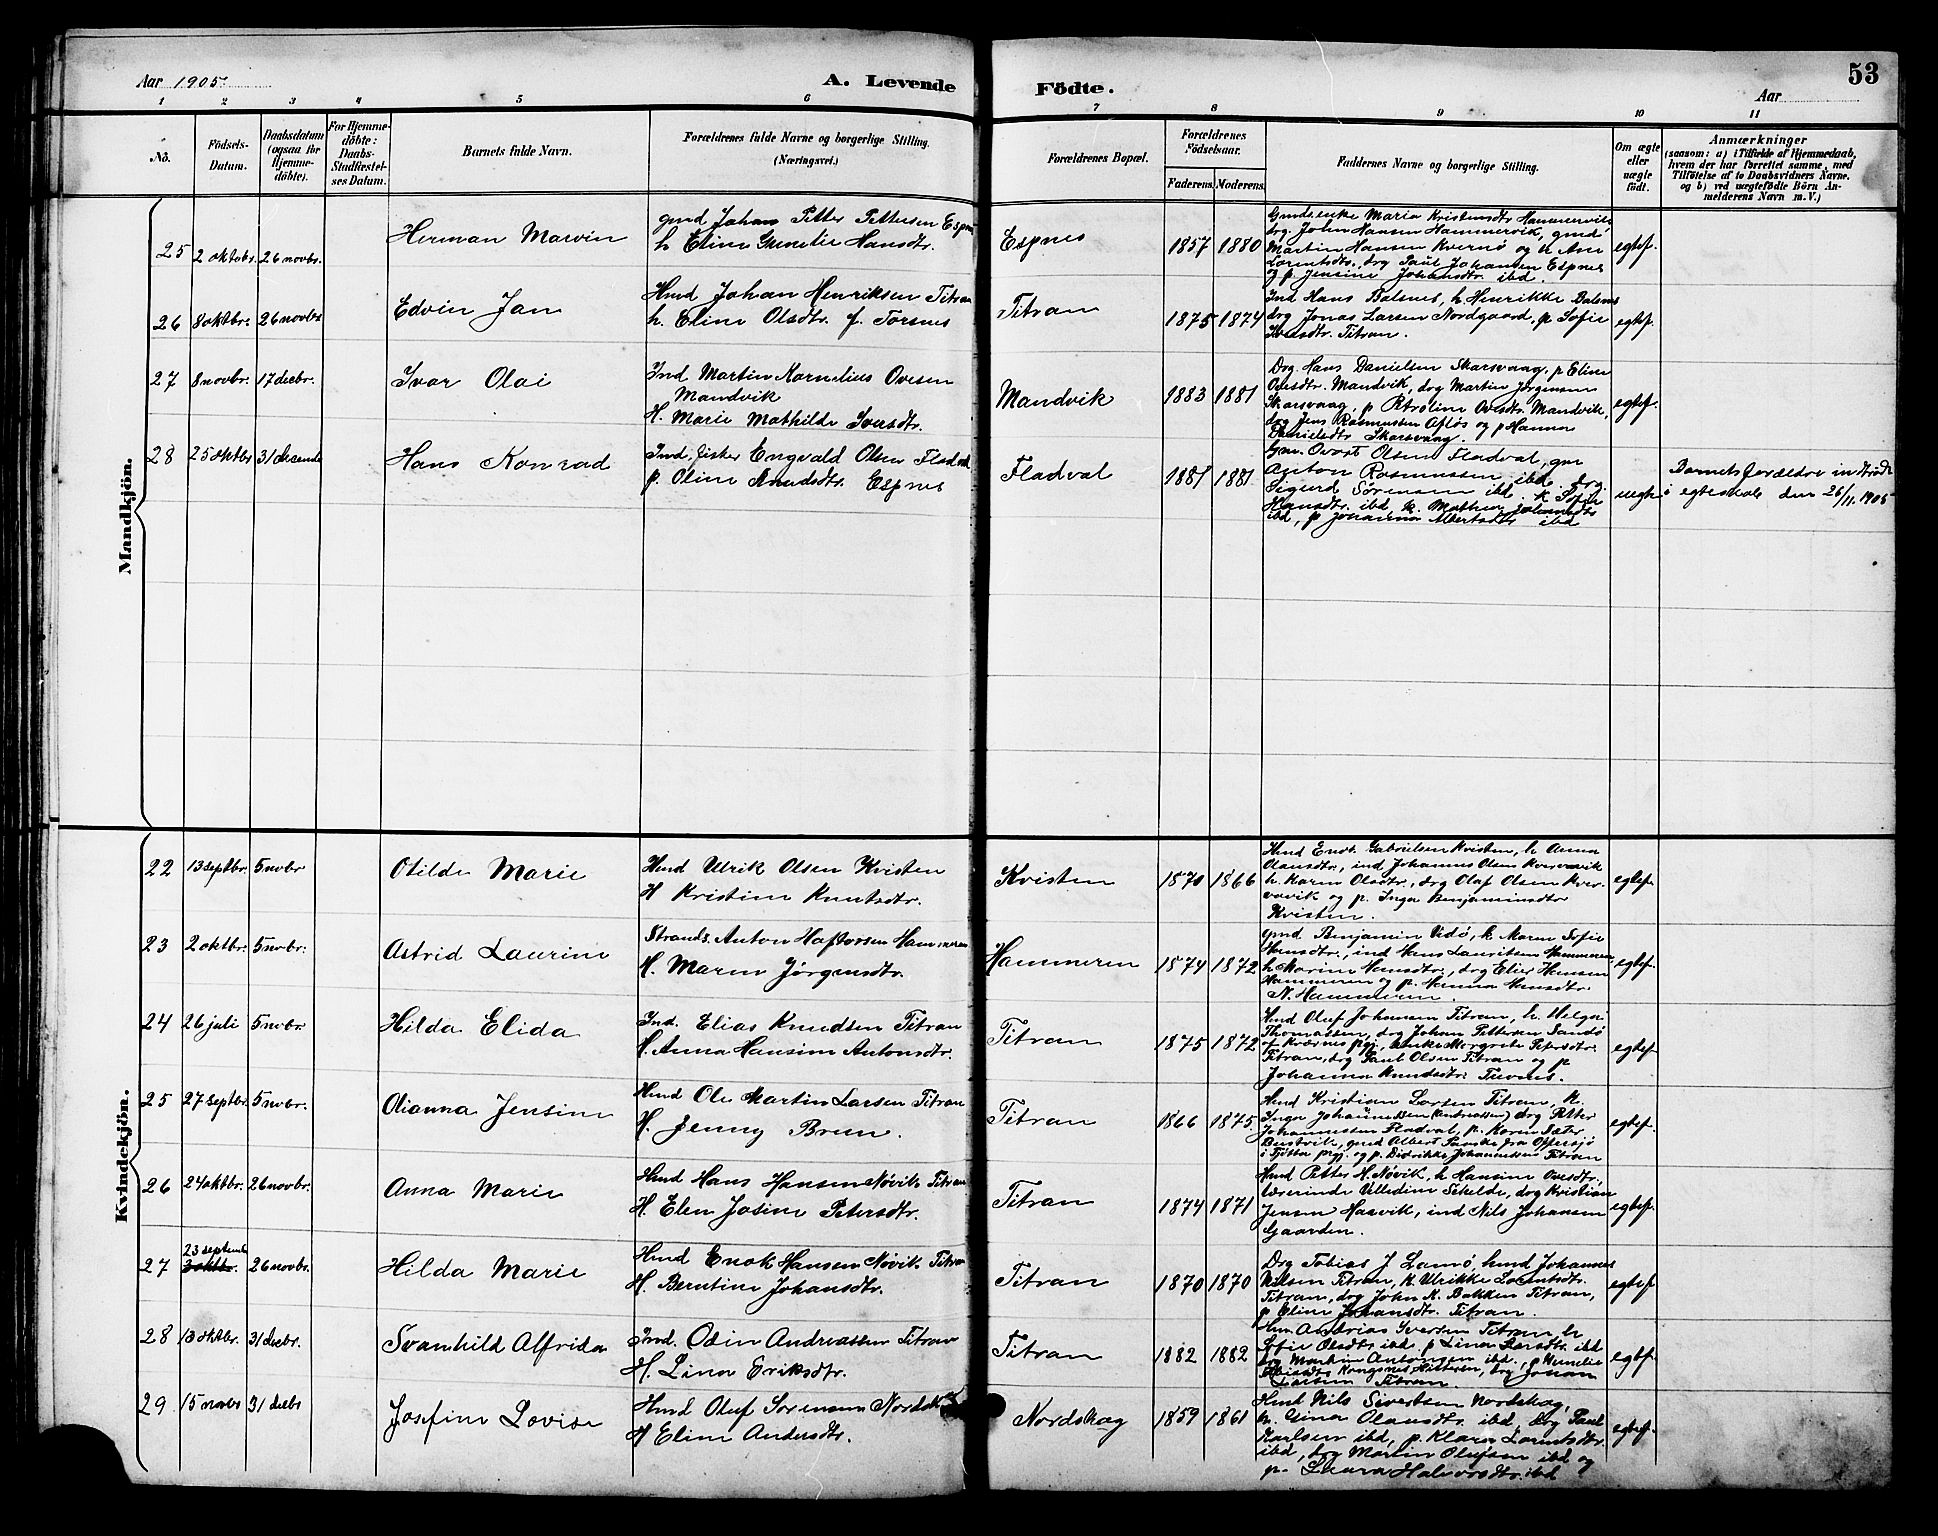 Aar 1905. A. Levende Födte. Aar 53
1 2 3 4 5 6 7 8 9 10 11
No. Födsels-Datum. Daabsdatum (ogsaa for Hjemme-döbte). For Hjemme-döbte: Daabs-Stadfæstel-ses Datum. Barnets fulde Navn. Forældrenes fulde Navne og borgerlige Stilling. (Næringsvei.) Forældrenes Bopæl. Forældrenes Födselsaar. Faderens. Moderens. Faddernes Navne og borgerlige Stilling. Om ægte eller uægte födt. Anmærkninger (saasom: a) i Tilfælde af Hjemmedaab, hvem der har forrettet samme, med Tilföielse af to Daabsvidners Navne, og b) ved uægtefödte Börn An-melderens Navn m. V.)
Mandkjön.
25 2 oktobr. 26 novbr. Herman Marvin
gmd Johan Petter Pettersen
h. Eline Hansdtr.
Espnes 1857 1880
Gmdsenke Maria Kristensdtr Hammervik
drg. John Hansen Hammervik, gmd
Martin Hansen Kvernø og h. Ane
Lorentsdtr. drg Paul Johansen Espnes
og p. Jensine Johansdtr. ibd.
egtef.
26 8 oktbr. 26 novbr Edvin Jan
Hmd Johan Henriksen Titran
h. Eline Olsdtr. f. Torsnes
Titran 1875 1874
Ind Hans Balsnes, h. Henrikke Balsnes
drg Jonas Larsen Nordgaard, p Sofie
Iversdtr. Titran.
egtef.
27 8 novbr. 17 decbr. Ivar Olai
Ind Martin Kornelius Ovesen
Mandvik
H. Marie Mathilde Iversdtr.
Mandvik 1883 1881
Drg. Hans Danielsen Skarsvaag, p Eline
Ovesdtr. Mandvik, drg Martin Jørgensen
Skarsvaag, p Petroline Ovesdtr. Mandvik,
drg Jens Rasmussen Afløs og p Hanna
Danielsdtr Skarsvaag.
egtef.
28 25 oktbr 31 decembr Hans Konrad
Ind, fisker Engvald Olsen Fladval
p. Oline Knudsdtr. Espnes
Fladval 1881 1881
Olsen Fladval, gm
Anton Rasmussen ibd. drg.
Sigurd Sörensen ibd. k Sofie
Hansdtr. ibd, k. Mathea Johannesdtr
ibd, p Johanna Albertsdtr ibd
uegte
Barnets forældre indtrådte
i egteskab den 26/11. 1905
Kvindekjön.
22 13 septbr. 5 novbr Otilde Marie
Hmd Ulrik Olsen Kvisten
H Kristine Knutsdtr.
Kvisten 1870 1866
Hmd Enok Gabrielsen Kvisten, h Anna
Olausdtr., ind Johannes Olsen Kvervavik
h. Karen Olsdtr., drg Olaf Olsen Kver-
vavik og p. Inga Benjaminsdtr
Kvisten.
egtef.
23 2 oktbr. 5 novbr. Astrid Laurine
Strands. Anton Haftorsen Hammeren
H. Maren Jørgensdtr.
Hammeren 1874 1872
gmd Benjamin Vidø, h. Maren Sofie
Hansdtr., ind Hans Lauritsen Hammeren
h Marine Hansdtr., drg Elier Hansen
Hammeren og p. Hanna Hansdtr.
N. Hammeren.
egtef.
24 26 juli 5 novbr. Hilda Elida
Ind. Elias Knudsen Titran
H. Anna Hansine Antonsdtr.
Titran 1875 1872
Hmd Oluf Johansen Titran, h. Helga
Thomassen, drg Johan Pettersen Sandø
af Kværnes pgj, enke Margrete Petersdtr.
Titran, drg Paul Olsen Titran og p
Johanna Knudsdtr.
egtef
25 27 septbr. 5 novbr. Olianna Jensine
Hmd Ole Martin Larsen Titran
H. Jenny Bruun.
Titran 1866 1875
Hmd Kristian Larsen Titran, k.
Inga Johannessen (Andreassen) drg Petter
Johannessen Fladval, p. Karen Sæter
Bustvik, gmd Albert fra Offersjø
i Tjøtta pgj. og p. Didrikke Johannessen Titran
egtef.
26 24 oktbr. 26 novbr. Anna Marie
Hmd Hans Hansen Novik Titran
H. Elen Josine Petersdtr.
Titran 1874 1871
Hmd Petter H. Novik, h Hansine Ovesdtr.,
lærerinde Schelde, drg Kristian
Jensen Hasvik, ind Nils Johansen
Gaarden.
egtef.
27 23 septemb 3 oktbr. 26 novbr. Hilda Marie
Hmd Enok Hansen Novik Titran
H. Berntine Johansdtr.
Titran 1870 1870
Drg Tobias J Lamø, hmd Johannes
Nilsen Titran, k. Ulrikke Lorentsdtr.
Titran, drg John K. Bakken Titran,
p Eline Johansdtr. Titran.
egtef
28 13 oktbr. 31 decbr. Svanhild Alfrida
Ind. Odin Andreassen Titran
H. Lina Eriksdtr.
Titran 1882 1882
Hm Andrias Iversen Titran h
Sofie Olsdtr ibd. p Lina Larsdtr. ibd
drg Martin Antonsen ibd., p Kornelie
Kongsnes Hitteren, drg Johan
Larsen Titran.
egtef.
29 15 novbr 31 decbr Josefine Lovise
Hmd Oluf Sørensen Nordskag
H Eline Andersdtr.
Nordskag 1859 1861
Hmd Nils Sivertsen Nordskag,
h. Gina Olausdtr. ibd, drg Paul
Karlsen ibd, p. Klara Lorntsdtr.
ibd, drg Martin Olufsen ibd og
p. Laura Halvorsdtr. ibd
egtef.